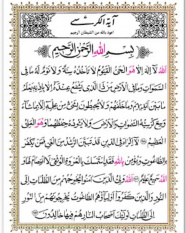 آية الكرسي
أعوذ بالله من الشيطان الرجيم
بسم الله الرحمن الرحيم
الله لا إله إلا هو الحي القيوم لا تأخذه سنة ولا نوم له ما في
السماوات وما في الأرض من ذا الذي يشفع عنده إلا بإذنه يعلم
ما بين أيديهم وما خلفهم ولا يحيطون بشيء من علمه إلا بما شاء
وسع كرسيه السماوات والأرض ولا يئوده حفظهما وهو العلي
العظيم لا إكراه في الدين قد تبين الرشد من الغي فمن يكفر
بالطاغوت ويؤمن بالله فقد استمسك بالعروة الوثقى لا انفصام لها
والله سميع عليم الله ولي الذين آمنوا يخرجهم من الظلمات إلى
النور والذين كفروا أولياؤهم الطاغوت يخرجونهم من النور
إلى الظلمات أولئك أصحاب النار هم فيها خالدون